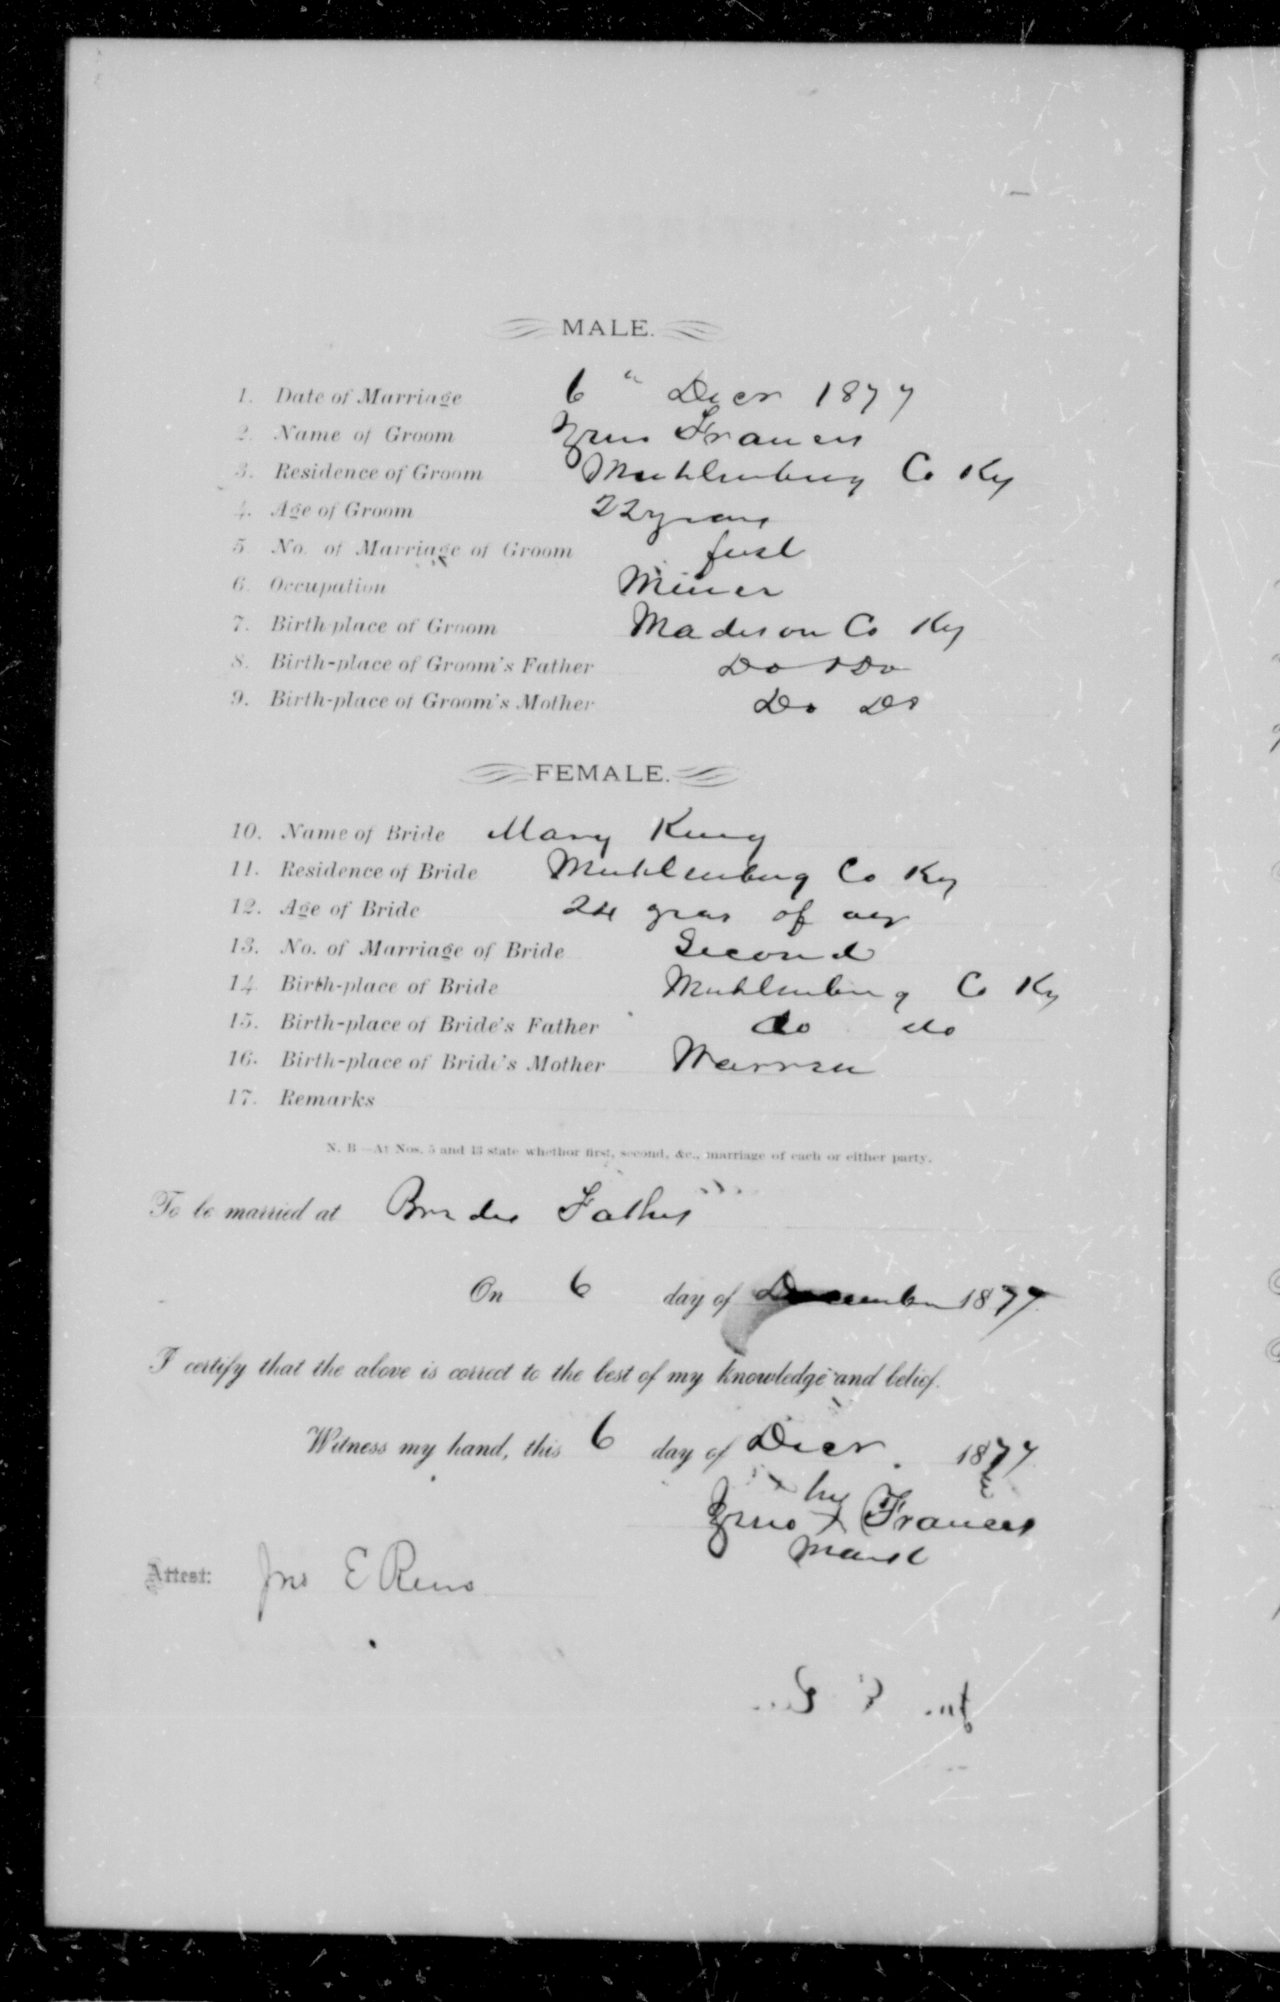 MALE.
1. Date of Marriage 6" Decr 1877
2. Name of Groom Frances
3. Residence of Groom Muhlenburg Co Ky
4. Age of Groom 22 years
5. No. of Marriage of Groom first
6. Occupation Miner
7. Birth-place of Groom Madison Co Ky
8. Birth-place of Groom's Father Do Do
9. Birth-place of Groom's Mother Do Do
FEMALE.
10. Name of Bride Mary King
11. Residence of Bride Muhlenburg Co Ky
12. Age of Bride 24 years of age
13. No. of Marriage of Bride Second
14. Birth-place of Bride Muhlenburg Co Ky
15. Birth-place of Bride's Father do do
16. Birth-place of Bride's Mother Warren
17. Remarks
N. B—At Nos. 5 and 13 state whether first, second, &c., marriage of each or either party.
To be married at Brides Fathers
On 6 day of December 1877
I certify that the above is correct to the best of my knowledge and belief.
Witness my hand, this 6 day of Decr. 1877
his
X Frances
mark
Attest: Jno E Reno